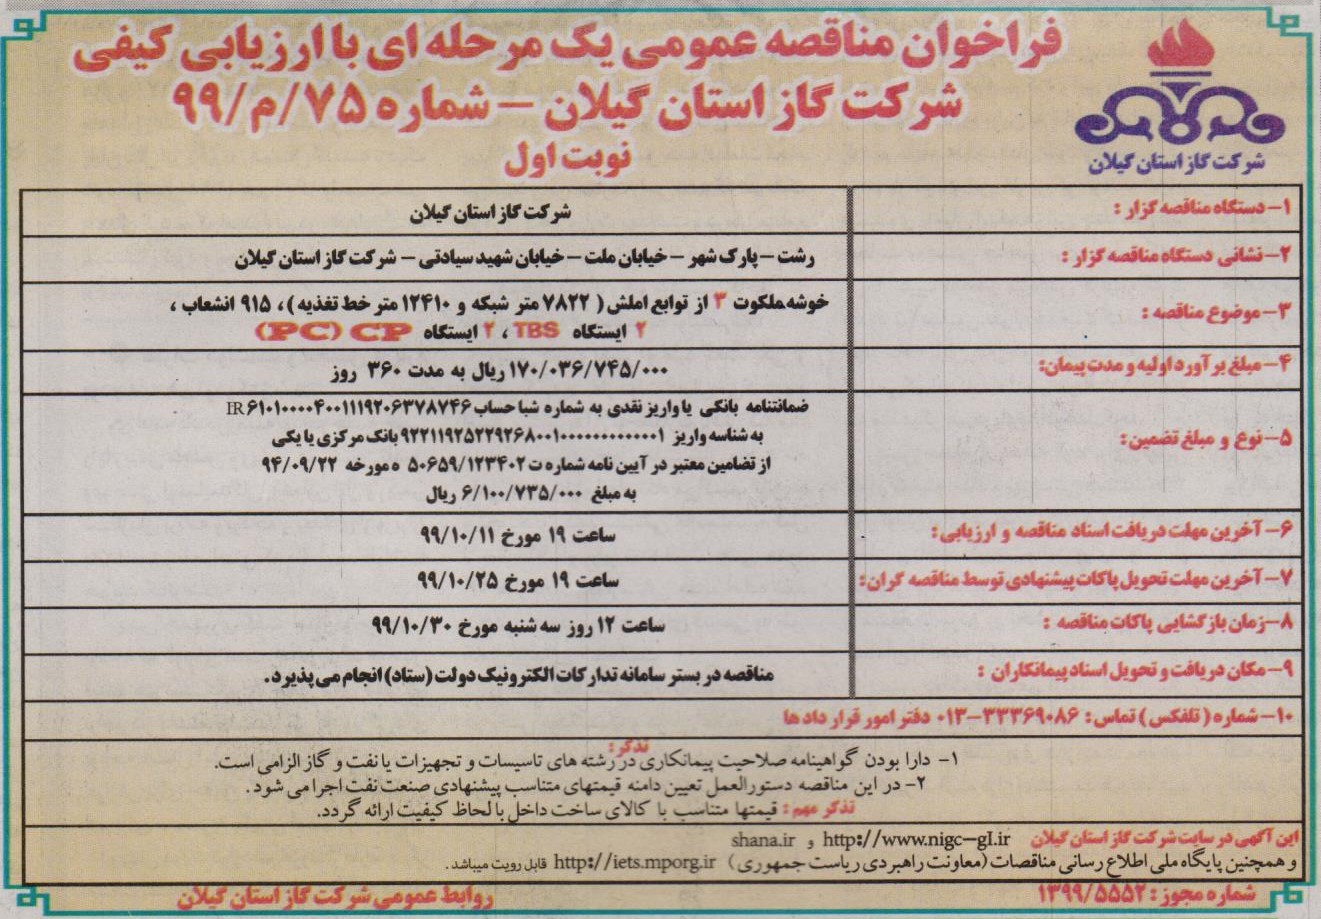 فراخوان مناقصه عمومی یک مرحله ای با ارزیابی کیفی
شرکت گاز استان گیلان – شماره ۹۹/م/۷۵
نوبت اول
شرکت گاز استان گیلان
۱- دستگاه مناقصه گزار : شرکت گاز استان گیلان
۲- نشانی دستگاه مناقصه گزار : رشت – پارک شهر – خیابان ملت – خیابان شهید سیادتی – شرکت گاز استان گیلان
۳- موضوع مناقصه : خوشه ملکوت ۳ از توابع املش ( ۷۸۲۲ متر شبکه و ۱۲۴۱۰ متر خط تغذیه ) ، ۹۱۵ انشعاب ،
۲ ایستگاه TBS ، ۲ ایستگاه CP (PC)
۴- مبلغ برآورد اولیه و مدت پیمان: ۱۷۰/۰۳۶/۷۴۵/۰۰۰ ریال به مدت ۳۶۰ روز
۵- نوع و مبلغ تضمین: ضمانتنامه بانکی یا واریز نقدی به شماره شبا حساب IR۶۱۰۱۰۰۰۰۴۰۰۱۱۱۹۲۰۶۳۷۸۷۴۶
به شناسه واریز ۹۲۲۱۱۹۲۵۲۲۹۲۶۸۰۰۱۰۰۰۰۰۰۰۰۰۰۰۰۱ بانک مرکزی یا یکی
از تضامین معتبر در آیین نامه شماره ت ۵۰۶۵۹/۱۲۳۴۰۲ ه مورخه ۹۴/۰۹/۲۲
به مبلغ ۶/۱۰۰/۷۳۵/۰۰۰ ریال
۶- آخرین مهلت دریافت اسناد مناقصه و ارزیابی: ساعت ۱۹ مورخ ۹۹/۱۰/۱۱
۷- آخرین مهلت تحویل پاکات پیشنهادی توسط مناقصه گران: ساعت ۱۹ مورخ ۹۹/۱۰/۲۵
۸- زمان بازگشایی پاکات مناقصه : ساعت ۱۲ روز سه شنبه مورخ ۹۹/۱۰/۳۰
۹- مکان دریافت و تحویل اسناد پیمانکاران : مناقصه در بستر سامانه تدارکات الکترونیک دولت (ستاد) انجام می پذیرد.
۱۰- شماره ( تلفکس ) تماس : ۳۳۳۶۹۰۸۶-۰۱۳ دفتر امور قرار دادها
تذکر :
۱- دارا بودن گواهینامه صلاحیت پیمانکاری در رشته های تاسیسات و تجهیزات یا نفت و گاز الزامی است.
۲- در این مناقصه دستورالعمل تعیین دامنه قیمتهای متناسب پیشنهادی صنعت نفت اجرا می شود .
تذکر مهم : قیمتها متناسب با کالای ساخت داخل با لحاظ کیفیت ارائه گردد.
این آگهی در سایت شرکت گاز استان گیلان http://www.nigc-gl.ir و shana.ir
و همچنین پایگاه ملی اطلاع رسانی مناقصات (معاونت راهبردی ریاست جمهوری) http://iets.mporg.ir قابل رویت میباشد.
شماره مجوز : ۱۳۹۹/۵۵۵۲
روابط عمومی شرکت گاز استان گیلان